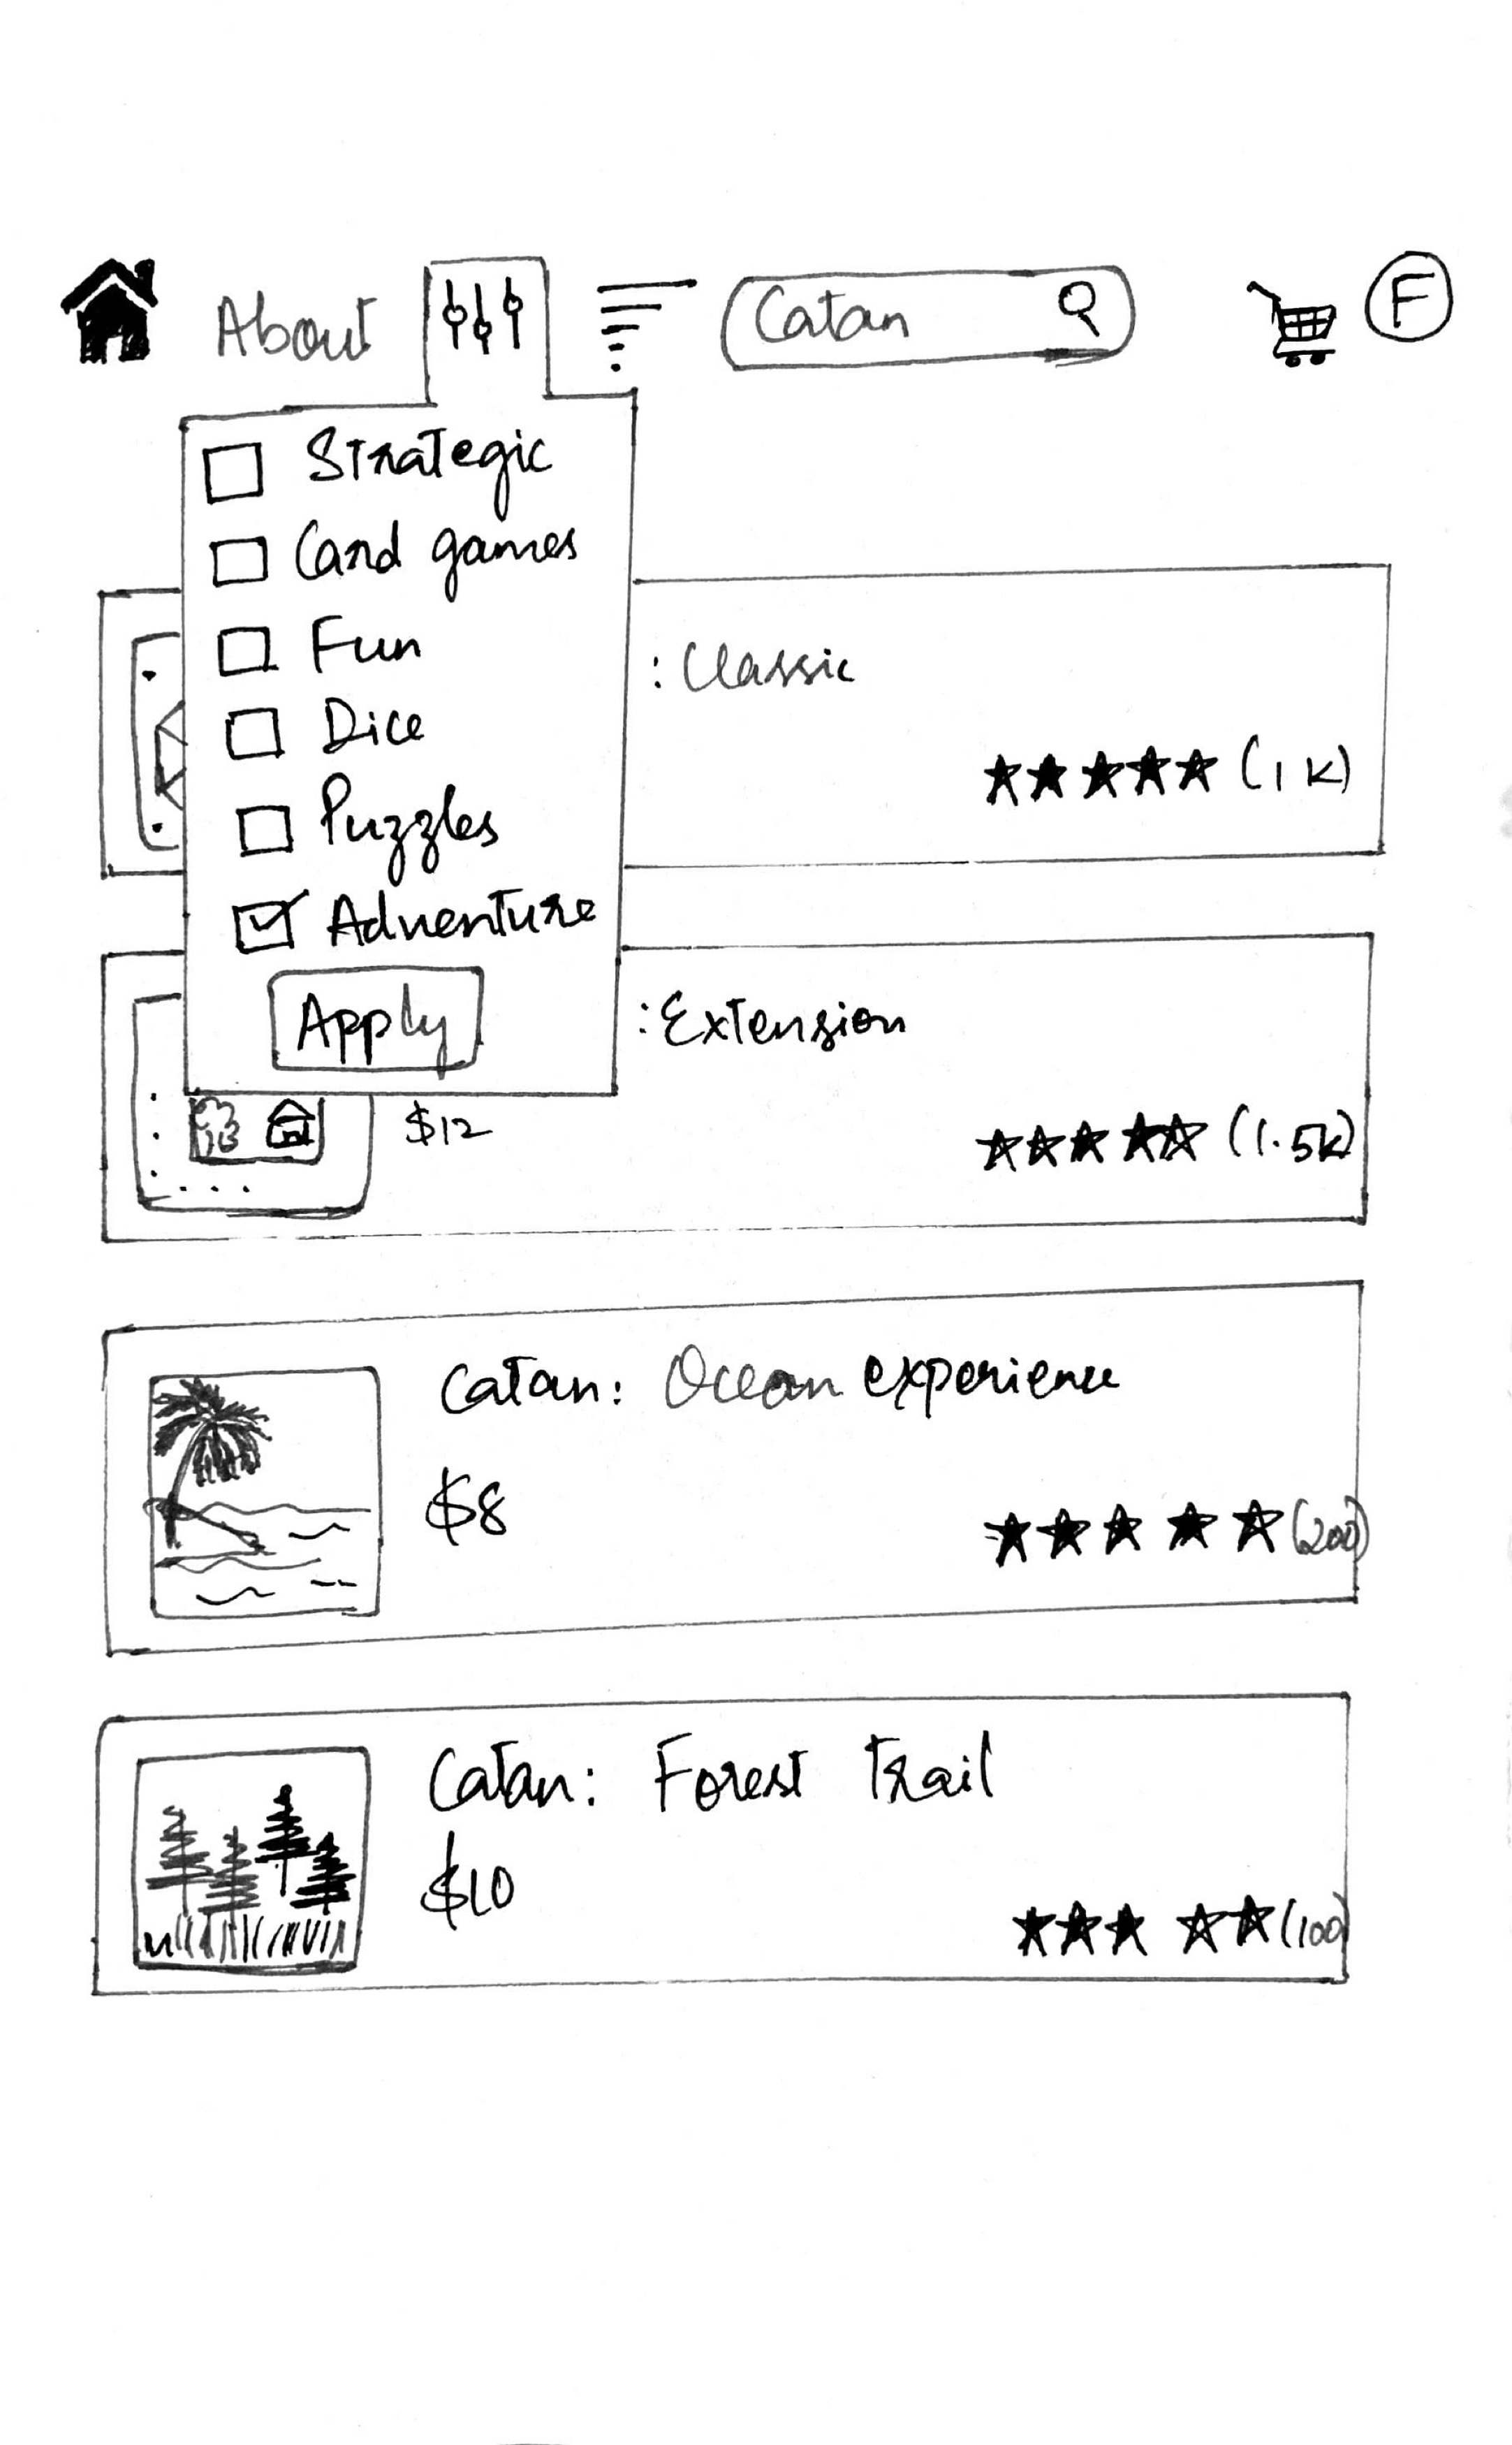 About
Catan
F
Strategic
Card games
Fun
Dice
Puzzles
Adventure
Apply
: Classic
(1K)
: Extension
$12
(1.5K)
Catan: Ocean experience
$8
(200)
Catan: Forest Trail
$10
(100)